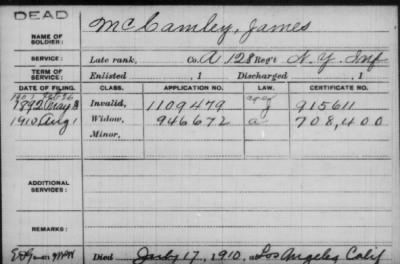 DEAD
NAME OF SOLDIER: McCamley, James
SERVICE: Late rank, Co. A 128 Reg't N.Y. Inf
TERM OF SERVICE: Enlisted , 1 Discharged , 1
DATE OF FILING. CLASS. APPLICATION NO. LAW. CERTIFICATE NO.
1892 May Invalid, 1109479 915611
1910 Aug 1 Widow, 946672 a 708,400
Minor,
ADDITIONAL SERVICES:
REMARKS:
Died July 17, 1910, at Los Angeles Calif